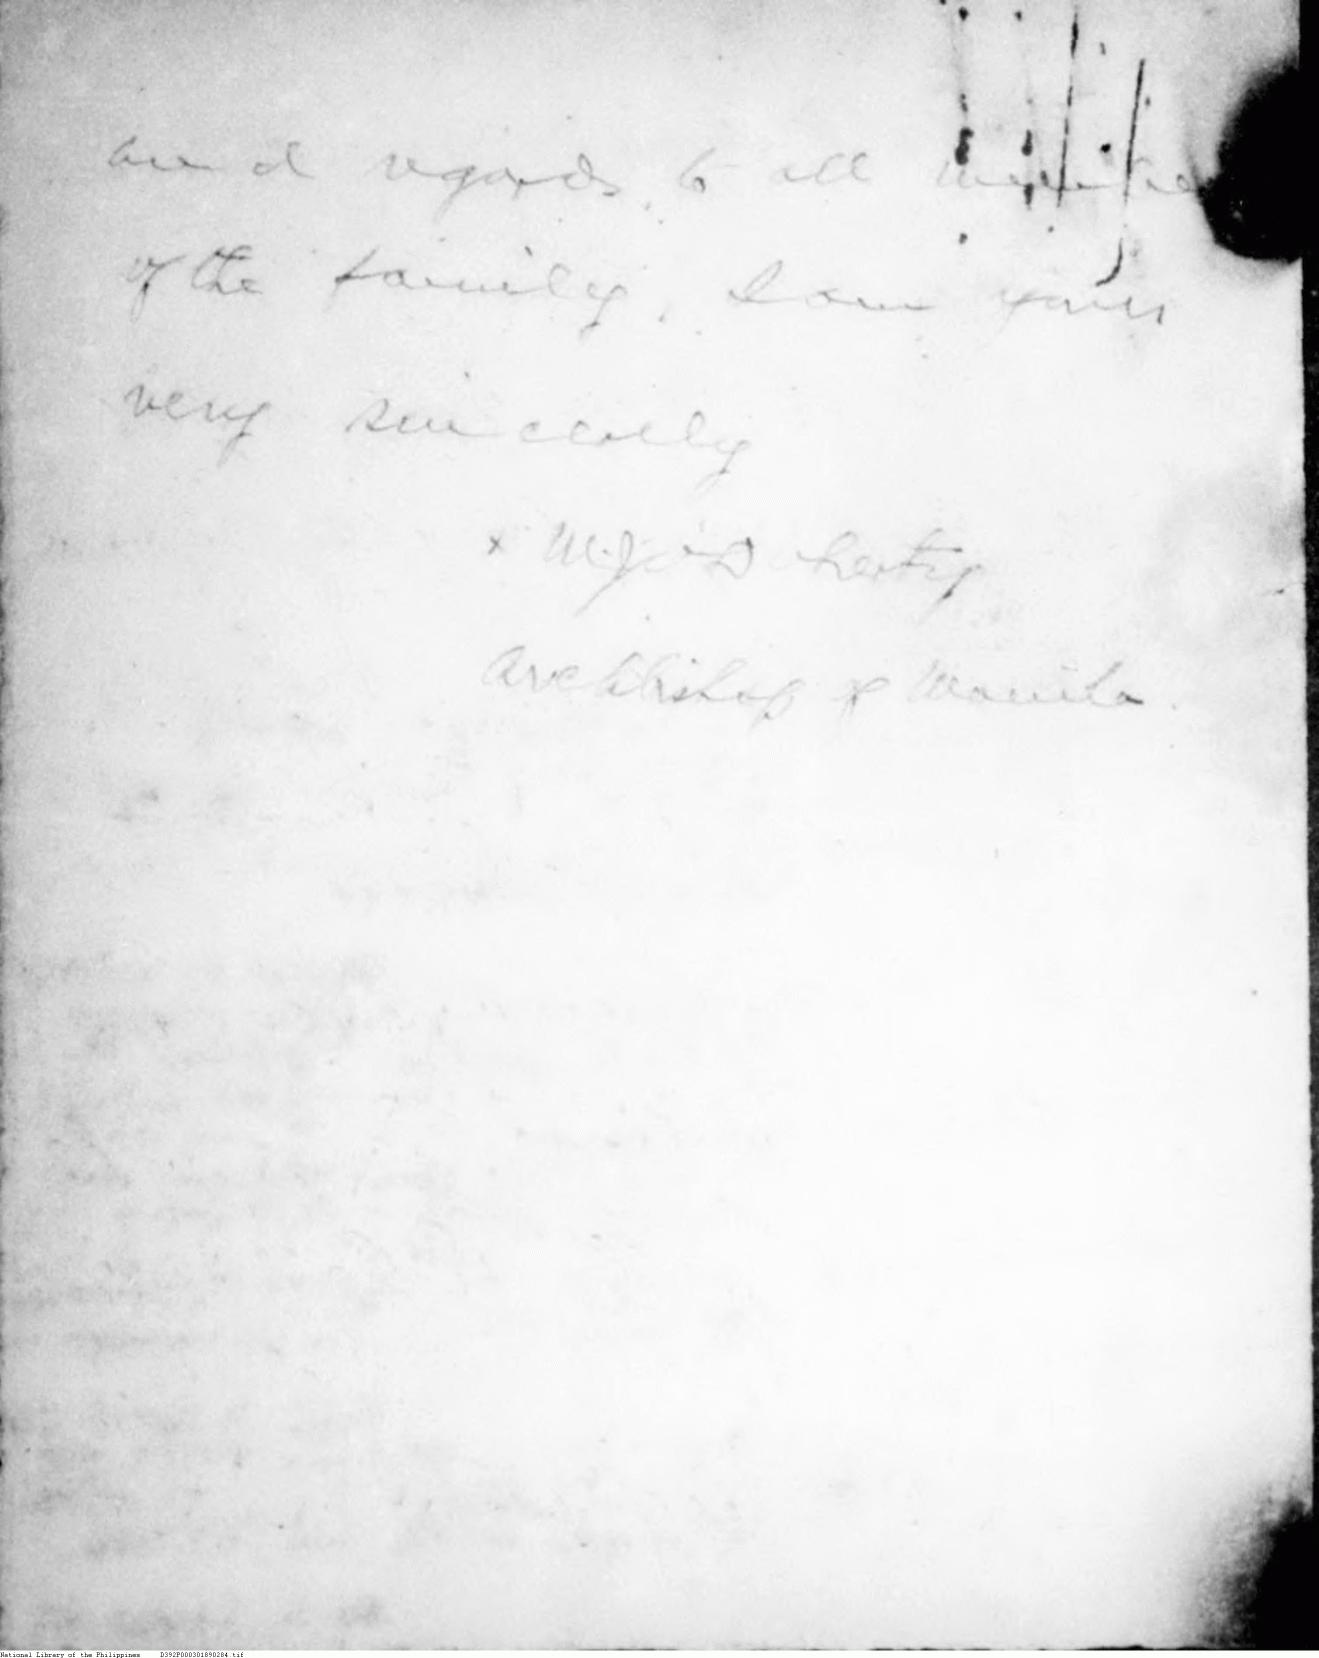 and regards to all members
of the family, I am yours
very sincerely
x M.J. O'Doherty
Archbishop of Manila.
National Library of the Philippines D392P000301890284.tif